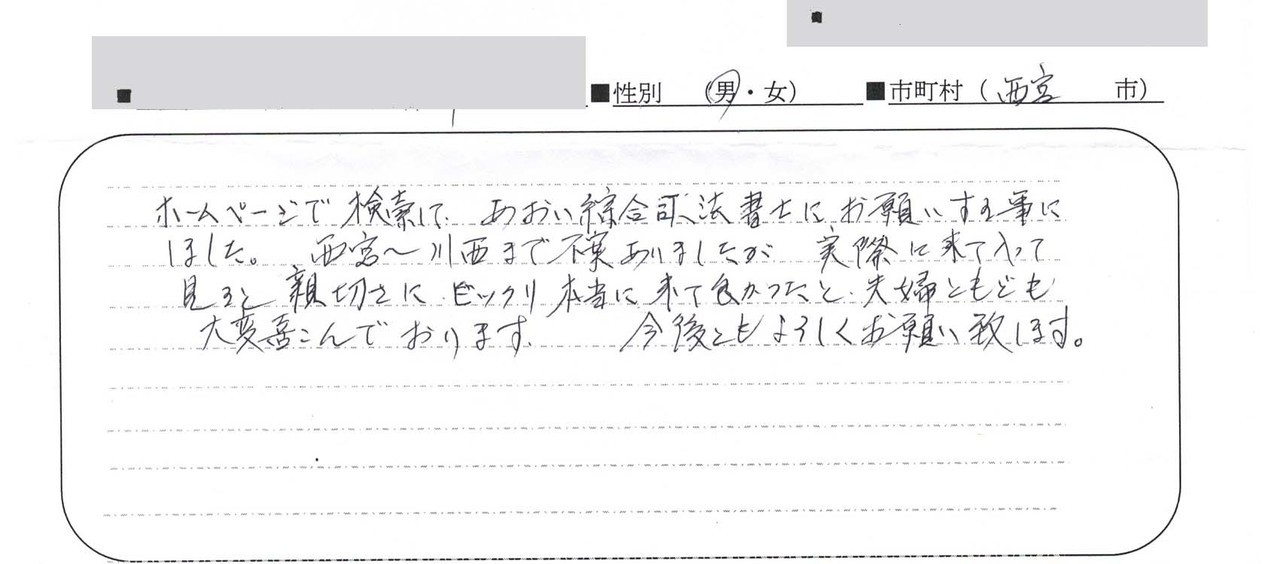 ■性別 (男・女) ■市町村(西宮 市)
ホームページで検索して、あおい綜合司法書士にお願いする事に
しました。 西宮〜川西まで不案ありましたが 実際に来て入って
見ると 親切さに ビックリ 本当に来て良かったと 夫婦ともども
大変喜こんでおります。 今後ともよろしくお願い致します。